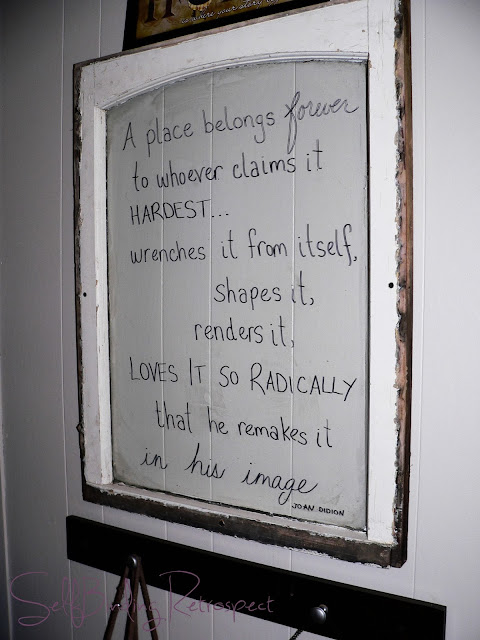 is where your story
A place belongs forever
to whoever claims it
HARDEST...
wrenches it from itself,
shapes it,
renders it,
LOVES IT SO RADICALLY
that he remakes it
in his image
JOAN DIDION
Retrospect